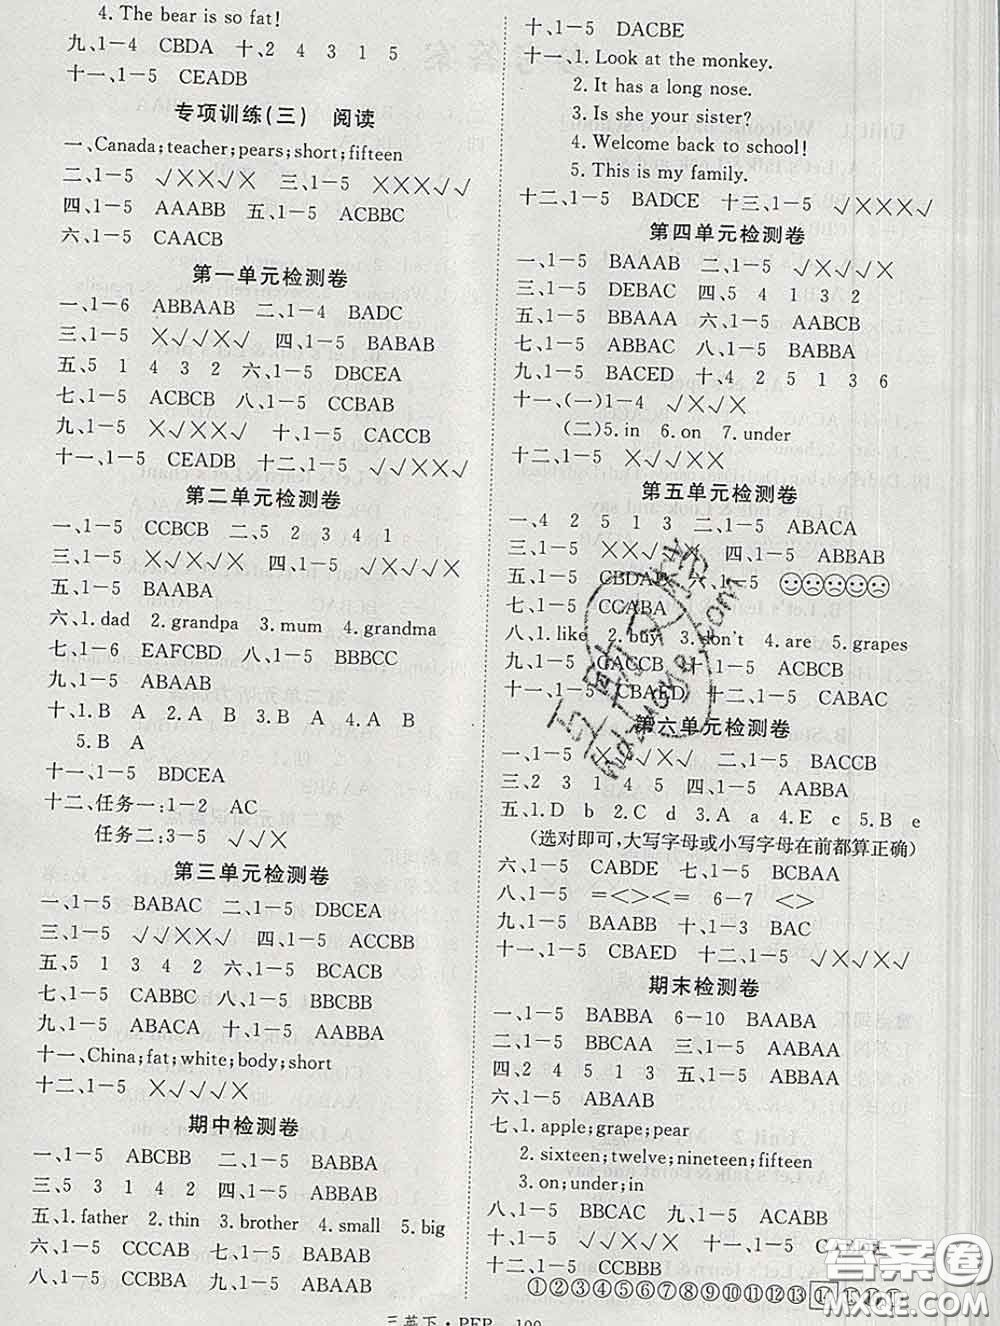 4. The bear is so fat!
九、1-4 CBDA 十、2 4 3 1 5
十一、1-5 CEADB
专项训练(三) 阅读
一、Canada;teacher;pears;short;fifteen
二、1-5 √××√√ 三、1-5 ×××√√
四、1-5 AAABB 五、1-5 ACBBC
六、1-5 CAACB
第一单元检测卷
一、1-6 ABBAAB 二、1-4 BADC
三、1-5 ×√√×√ 四、1-5 BABAB
五、5 1 4 3 2 六、1-5 DBCEA
七、1-5 ACBCB 八、1-5 CCBAB
九、1-5 ×√××√ 十、1-5 CACCB
十一、1-5 CEADB 十二、1-5 √×√××
第二单元检测卷
一、1-5 CCBCB 二、5 2 3 4 1
三、1-5 ×√×√√ 四、1-5 √×√√×
五、1-5 BAABA
六、1. dad 2. grandpa 3. mum 4. grandma
七、1-6 EAFCBD 八、1-5 BBBCC
九、1-5 ABAAB
十、1. B A 2. A B 3. B A 4. A B
5. B A
十一、1-5 BDCEA
十二、任务一:1-2 AC
任务二:3-5 √√×
第三单元检测卷
一、1-5 BABAC 二、1-5 DBCEA
三、1-5 √√×√× 四、1-5 ACCBB
五、5 1 3 4 2 六、1-5 BCACB
七、1-5 CABBC 八、1-5 BBCBB
九、1-5 ABACA 十、1-5 AABBA
十一、China;fat;white;body;short
十二、1-5 ×√√××
期中检测卷
一、1-5 ABCBB 二、1-5 BABBA
三、5 3 1 4 2 四、1-5 ABBAB
五、1. father 2. thin 3. brother 4. small 5. big
六、1-5 CCCAB 七、1-5 BABAB
八、1-5 CCBBA 九、1-5 ABAAB
十、1-5 DACBE
十一、1. Look at the monkey.
2. It has a long nose.
3. Is she your sister?
4. Welcome back to school!
5. This is my family.
十二、1-5 BADCE 十三、1-5 √×××√
第四单元检测卷
一、1-5 BAAAB 二、1-5 √×√××
三、1-5 DEBAC 四、5 4 1 3 2
五、1-5 BBAAA 六、1-5 AABCB
七、1-5 ABBAC 八、1-5 BABBA
九、1-5 BACED 十、4 2 5 1 3 6
十一、(一)1-4 √×√×
(二)5. in 6. on 7. under
十二、1-5 ×√√××
第五单元检测卷
一、4 2 5 1 3 二、1-5 ABACA
三、1-5 ××√√× 四、1-5 ABBAB
五、1-5 六、1-5 ☺☹☺☺☹
七、1-5 CCABA
八、1. like 2. buy 3. don't 4. are 5. grapes
九、1-5 CACCB 十、1-5 ACBCB
十一、1-5 CBAED 十二、1-5 CABAC
第六单元检测卷
一、1-5 二、1-5 BACCB
三、2 3 1 4 5 四、1-5 AABBA
五、1. D b 2. C d 3. A a 4. E c 5. B e
(选对即可,大写字母或小写字母在前都算正确)
六、1-5 CABDE 七、1-5 BCBAA
八、1-5 =<><= 6-7 <>
九、1-5 BAABB 十、1-3 BAC
十一、1-5 CBAED 十二、1-5 √×√×√
期末检测卷
一、1-5 BABBA 6-10 BAABA
二、1-5 BBCAA 三、1-5 AABAA
四、2 4 5 1 3 五、1-5 AABAA
六、1-5 ABAAB
七、1. apple;grape;pear
2. sixteen;twelve;nineteen;fifteen
3. on;under;in
八、1-5 BBCAC 九、1-5 ACABB
十、1-5 √√×√× 十一、1-5
十二、1-5 CCBBB
①②③④⑤⑥⑦⑧⑨⑩⑪⑫⑬
三英下·PEP
答案圈